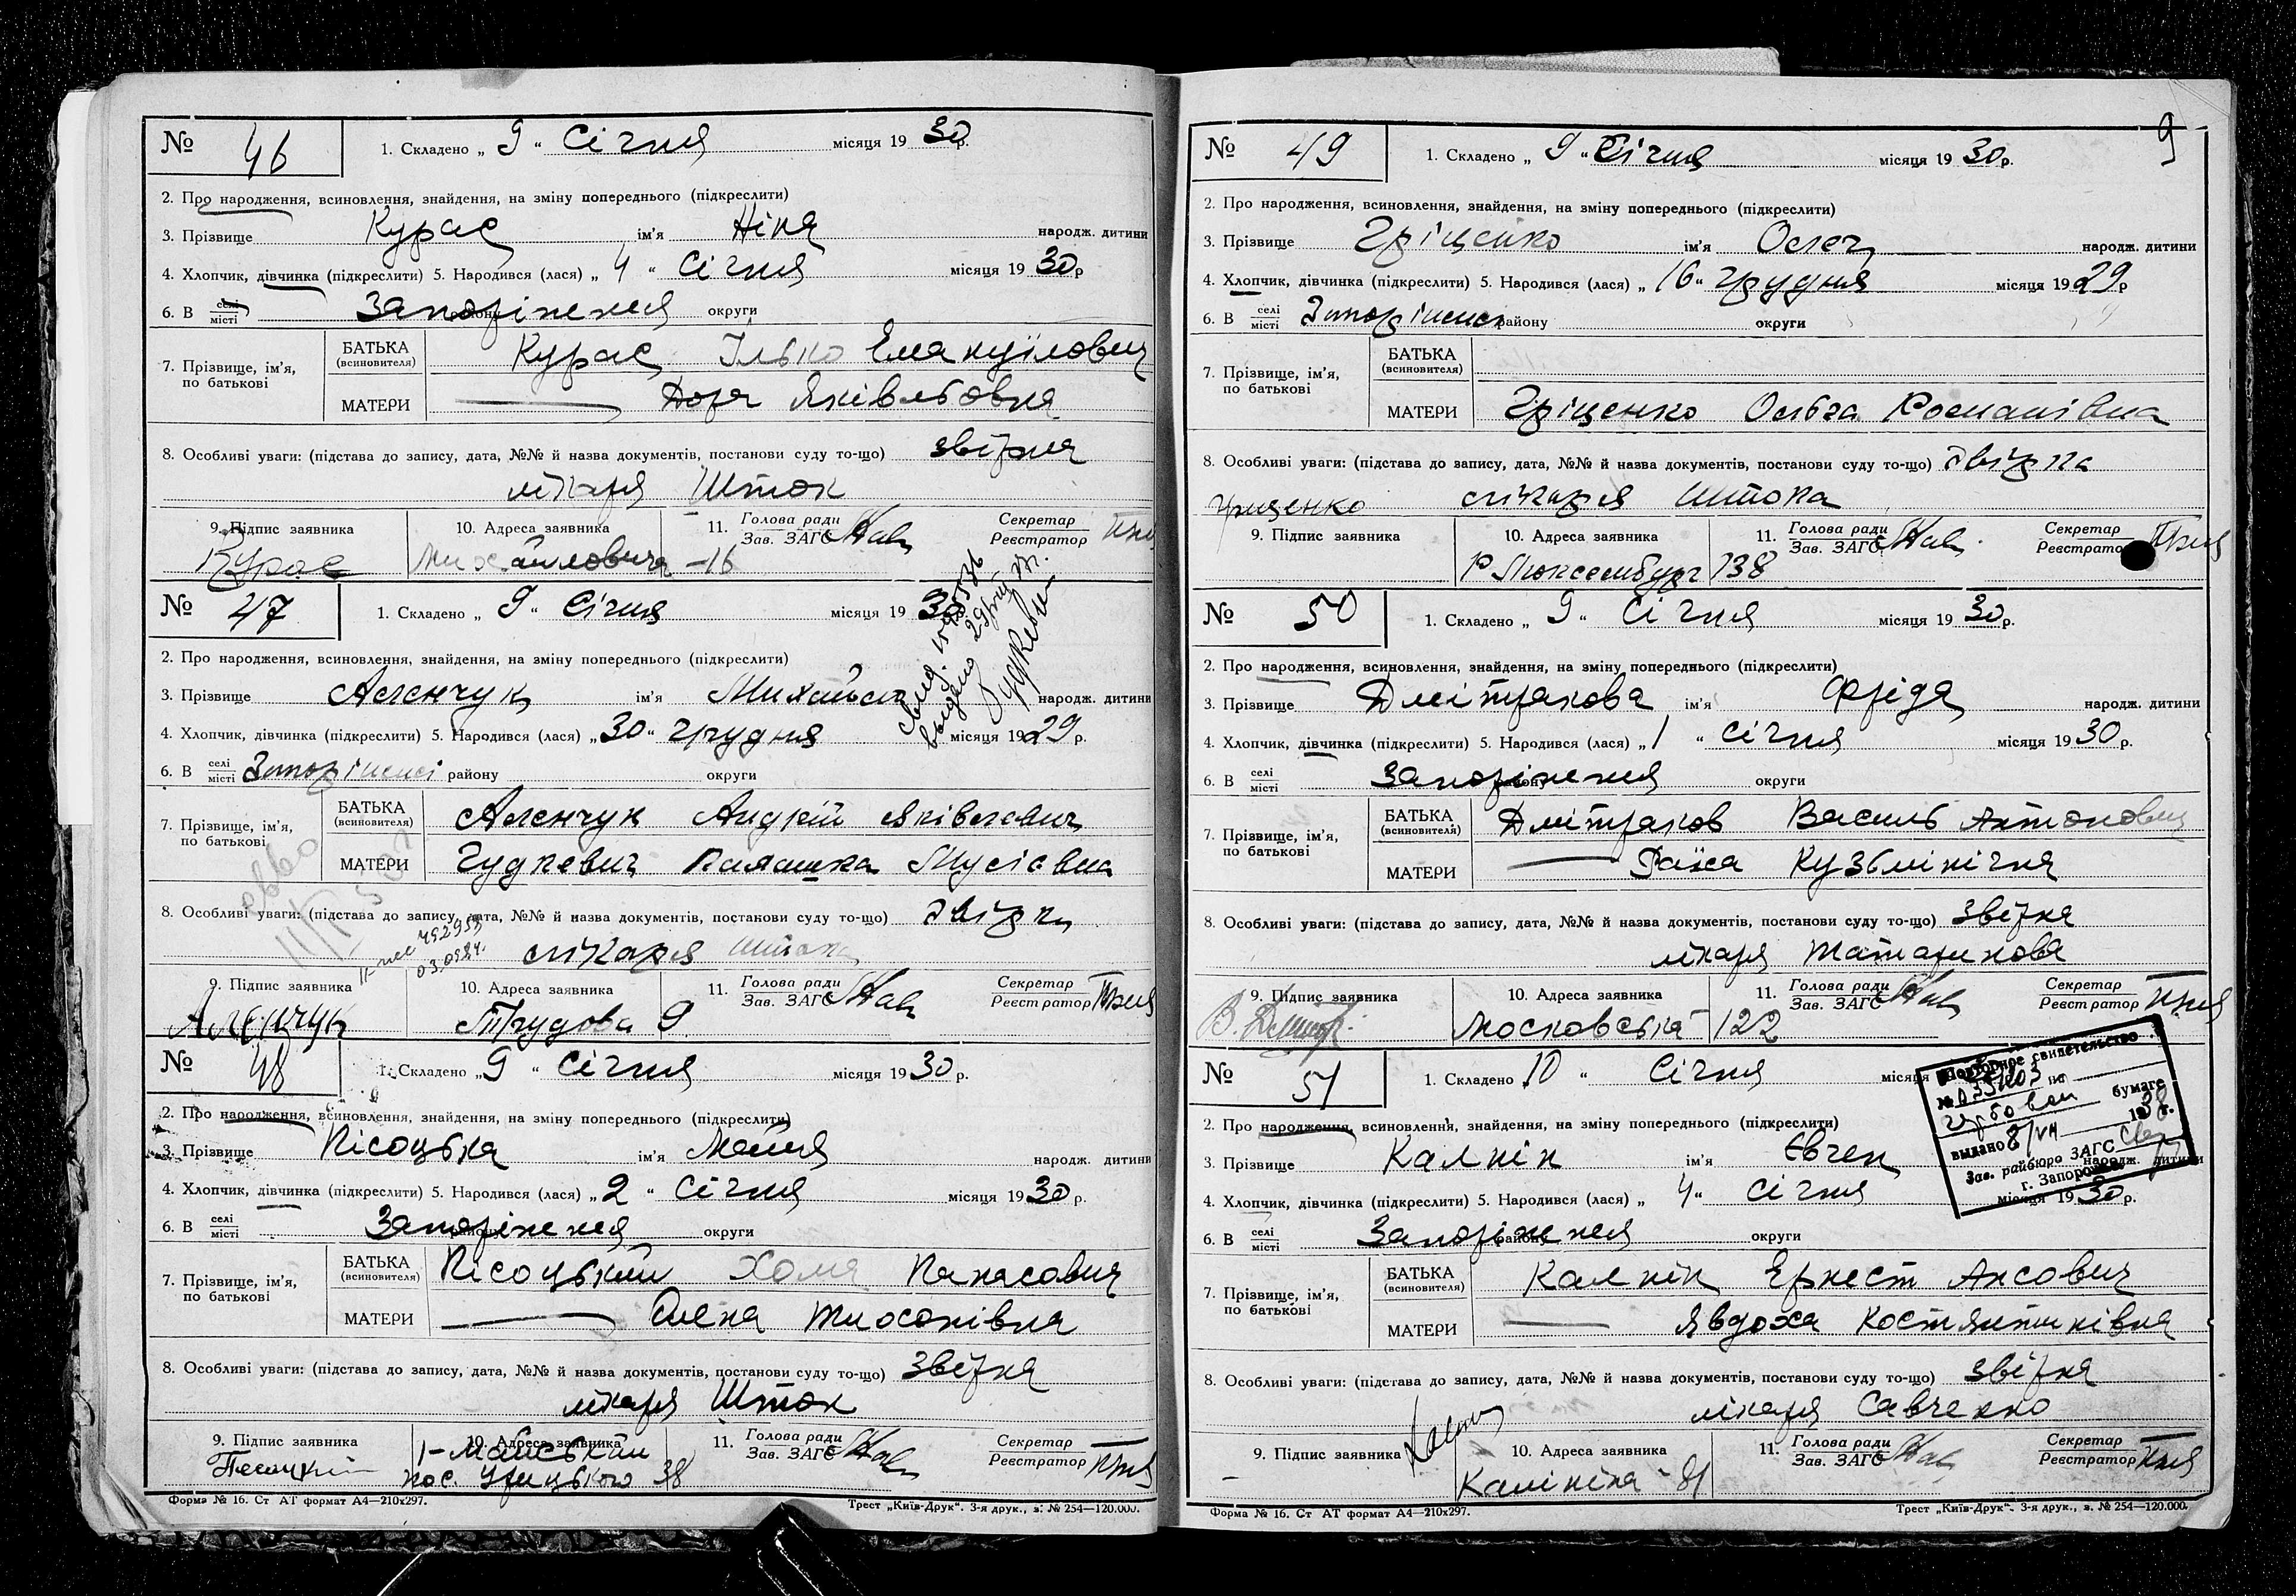 № 46 1. Складено „ 9 “ Січня місяця 19 30 р.
2. Про народження, всиновлення, знайдення, на зміну попереднього (підкреслити)
3. Прізвище Курас ім’я Ніна народж. дитини
4. Хлопчик, дівчинка (підкреслити) 5. Народився (лася) „ 4 “ Січня місяця 19 30 р
6. В селі місті Запоріжжя району округи
7. Прізвище, ім’я, по батькові БАТЬКА (всиновителя) Курас Ілько Емануїлович
МАТЕРИ Дора Яківлівна
8. Особливі уваги: (підстава до запису, дата, №№ й назва документів, постанови суду то-що) звірка
лікаря Шток
9. Підпис заявника 10. Адреса заявника 11. Голова ради Зав. ЗАГС Секретар Реєстратор
Курас Михайловича –16
№ 47 1. Складено „ 9 “ Січня місяця 19 30
2. Про народження, всиновлення, знайдення, на зміну попереднього (підкреслити)
3. Прізвище Аленчук ім’я народж. дитини
4. Хлопчик, дівчинка (підкреслити) 5. Народився (лася) „ 30 “ грудня місяця 19 29 р.
6. В селі місті Запоріжжі району округи
7. Прізвище, ім’я, по батькові БАТЬКА (всиновителя) Аленчук Андрій Яківлевич
МАТЕРИ Гудкевич Палашка Мусієвна
8. Особливі уваги: (підстава до запису, дата, №№ й назва документів, постанови суду то-що) звірка
лікаря Штока
9. Підпис заявника 10. Адреса заявника 11. Голова ради Зав. ЗАГС Секретар Реєстратор
Аленчук Трудова 9
№ 48 1. Складено „ 9 “ Січня місяця 19 30 р.
2. Про народження, всиновлення, знайдення, на зміну попереднього (підкреслити)
3. Прізвище Пісоцька ім’я народж. дитини
4. Хлопчик, дівчинка (підкреслити) 5. Народився (лася) „ 2 “ Січня місяця 19 30 р.
6. В селі місті Запоріжжя району округи
7. Прізвище, ім’я, по батькові БАТЬКА (всиновителя) Пісоцький Хома Панасович
МАТЕРИ Олена
8. Особливі уваги: (підстава до запису, дата, №№ й назва документів, постанови суду то-що) звірка
лікаря Шток
9. Підпис заявника 10. Адреса заявника 11. Голова ради Зав. ЗАГС Секретар Реєстратор
пос. Урицького 38
Форма № 16. Ст АТ формат А4—210х297. Трест „Київ-Друк“. 3-я друк., з. № 254—120.000.
9
№ 49 1. Складено „ 9 “ Січня місяця 19 30 р.
2. Про народження, всиновлення, знайдення, на зміну попереднього (підкреслити)
3. Прізвище Гріценко ім’я Олег народж. дитини
4. Хлопчик, дівчинка (підкреслити) 5. Народився (лася) „ 16 “ грудня місяця 19 29 р
6. В селі місті Запоріжжі району округи
7. Прізвище, ім’я, по батькові БАТЬКА (всиновителя)
МАТЕРИ Гріценко Ольга Романівна
8. Особливі уваги: (підстава до запису, дата, №№ й назва документів, постанови суду то-що) звірка
Гриценко лікаря Штока
9. Підпис заявника 10. Адреса заявника 11. Голова ради Зав. ЗАГС Секретар Реєстратор
Р Люксембург 138
№ 50 1. Складено „ 9 “ Січня місяця 19 30 р.
2. Про народження, всиновлення, знайдення, на зміну попереднього (підкреслити)
3. Прізвище Дмітракова ім’я Фріда народж. дитини
4. Хлопчик, дівчинка (підкреслити) 5. Народився (лася) „ 1 “ Січня місяця 19 30 р.
6. В селі місті Запоріжжя району округи
7. Прізвище, ім’я, по батькові БАТЬКА (всиновителя) Дмітраков Василь Антонович
МАТЕРИ Раїса Кузьмінічня
8. Особливі уваги: (підстава до запису, дата, №№ й назва документів, постанови суду то-що) звірка
лікаря Татаринова
9. Підпис заявника 10. Адреса заявника 11. Голова ради Зав. ЗАГС Секретар Реєстратор
Московська 122
№ 51 1. Складено 10 “ Січня місяця
Повторное свидетельство
№ 035103 на
гербовой бумаге
выдано 8/VII 1938 г.
Зав. райбюро ЗАГС
г. Запорожье
2. Про народження, всиновлення, знайдення, на зміну попереднього (підкреслити)
3. Прізвище Калнін ім’я Євген народж. дитини
4. Хлопчик, дівчинка (підкреслити) 5. Народився (лася) „ 4 “ Січня місяця 19 30 р.
6. В селі місті Запоріжжя району округи
7. Прізвище, ім’я, по батькові БАТЬКА (всиновителя) Калнін Ернест Ансович
МАТЕРИ Явдоха Костянтинівна
8. Особливі уваги: (підстава до запису, дата, №№ й назва документів, постанови суду то-що) звірка
лікаря Савченко
9. Підпис заявника 10. Адреса заявника 11. Голова ради Зав. ЗАГС Секретар Реєстратор
Калініна – 81
Форма № 16. Ст АТ формат А4—210х297. Трест „Київ-Друк“. 3-я друк., з. № 254—120.000.